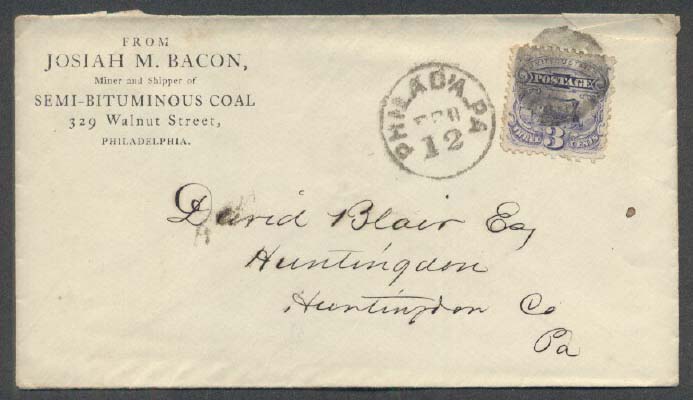 FROM
JOSIAH M. BACON,
Miner and Shipper of
SEMI-BITUMINOUS COAL
329 Walnut Street,
PHILADELPHIA.
PHILAD'A. PA
FEB
12
POSTAGE
THREE 3 CENTS
David Blair Esq
Huntingdon
Huntingdon Co
Pa